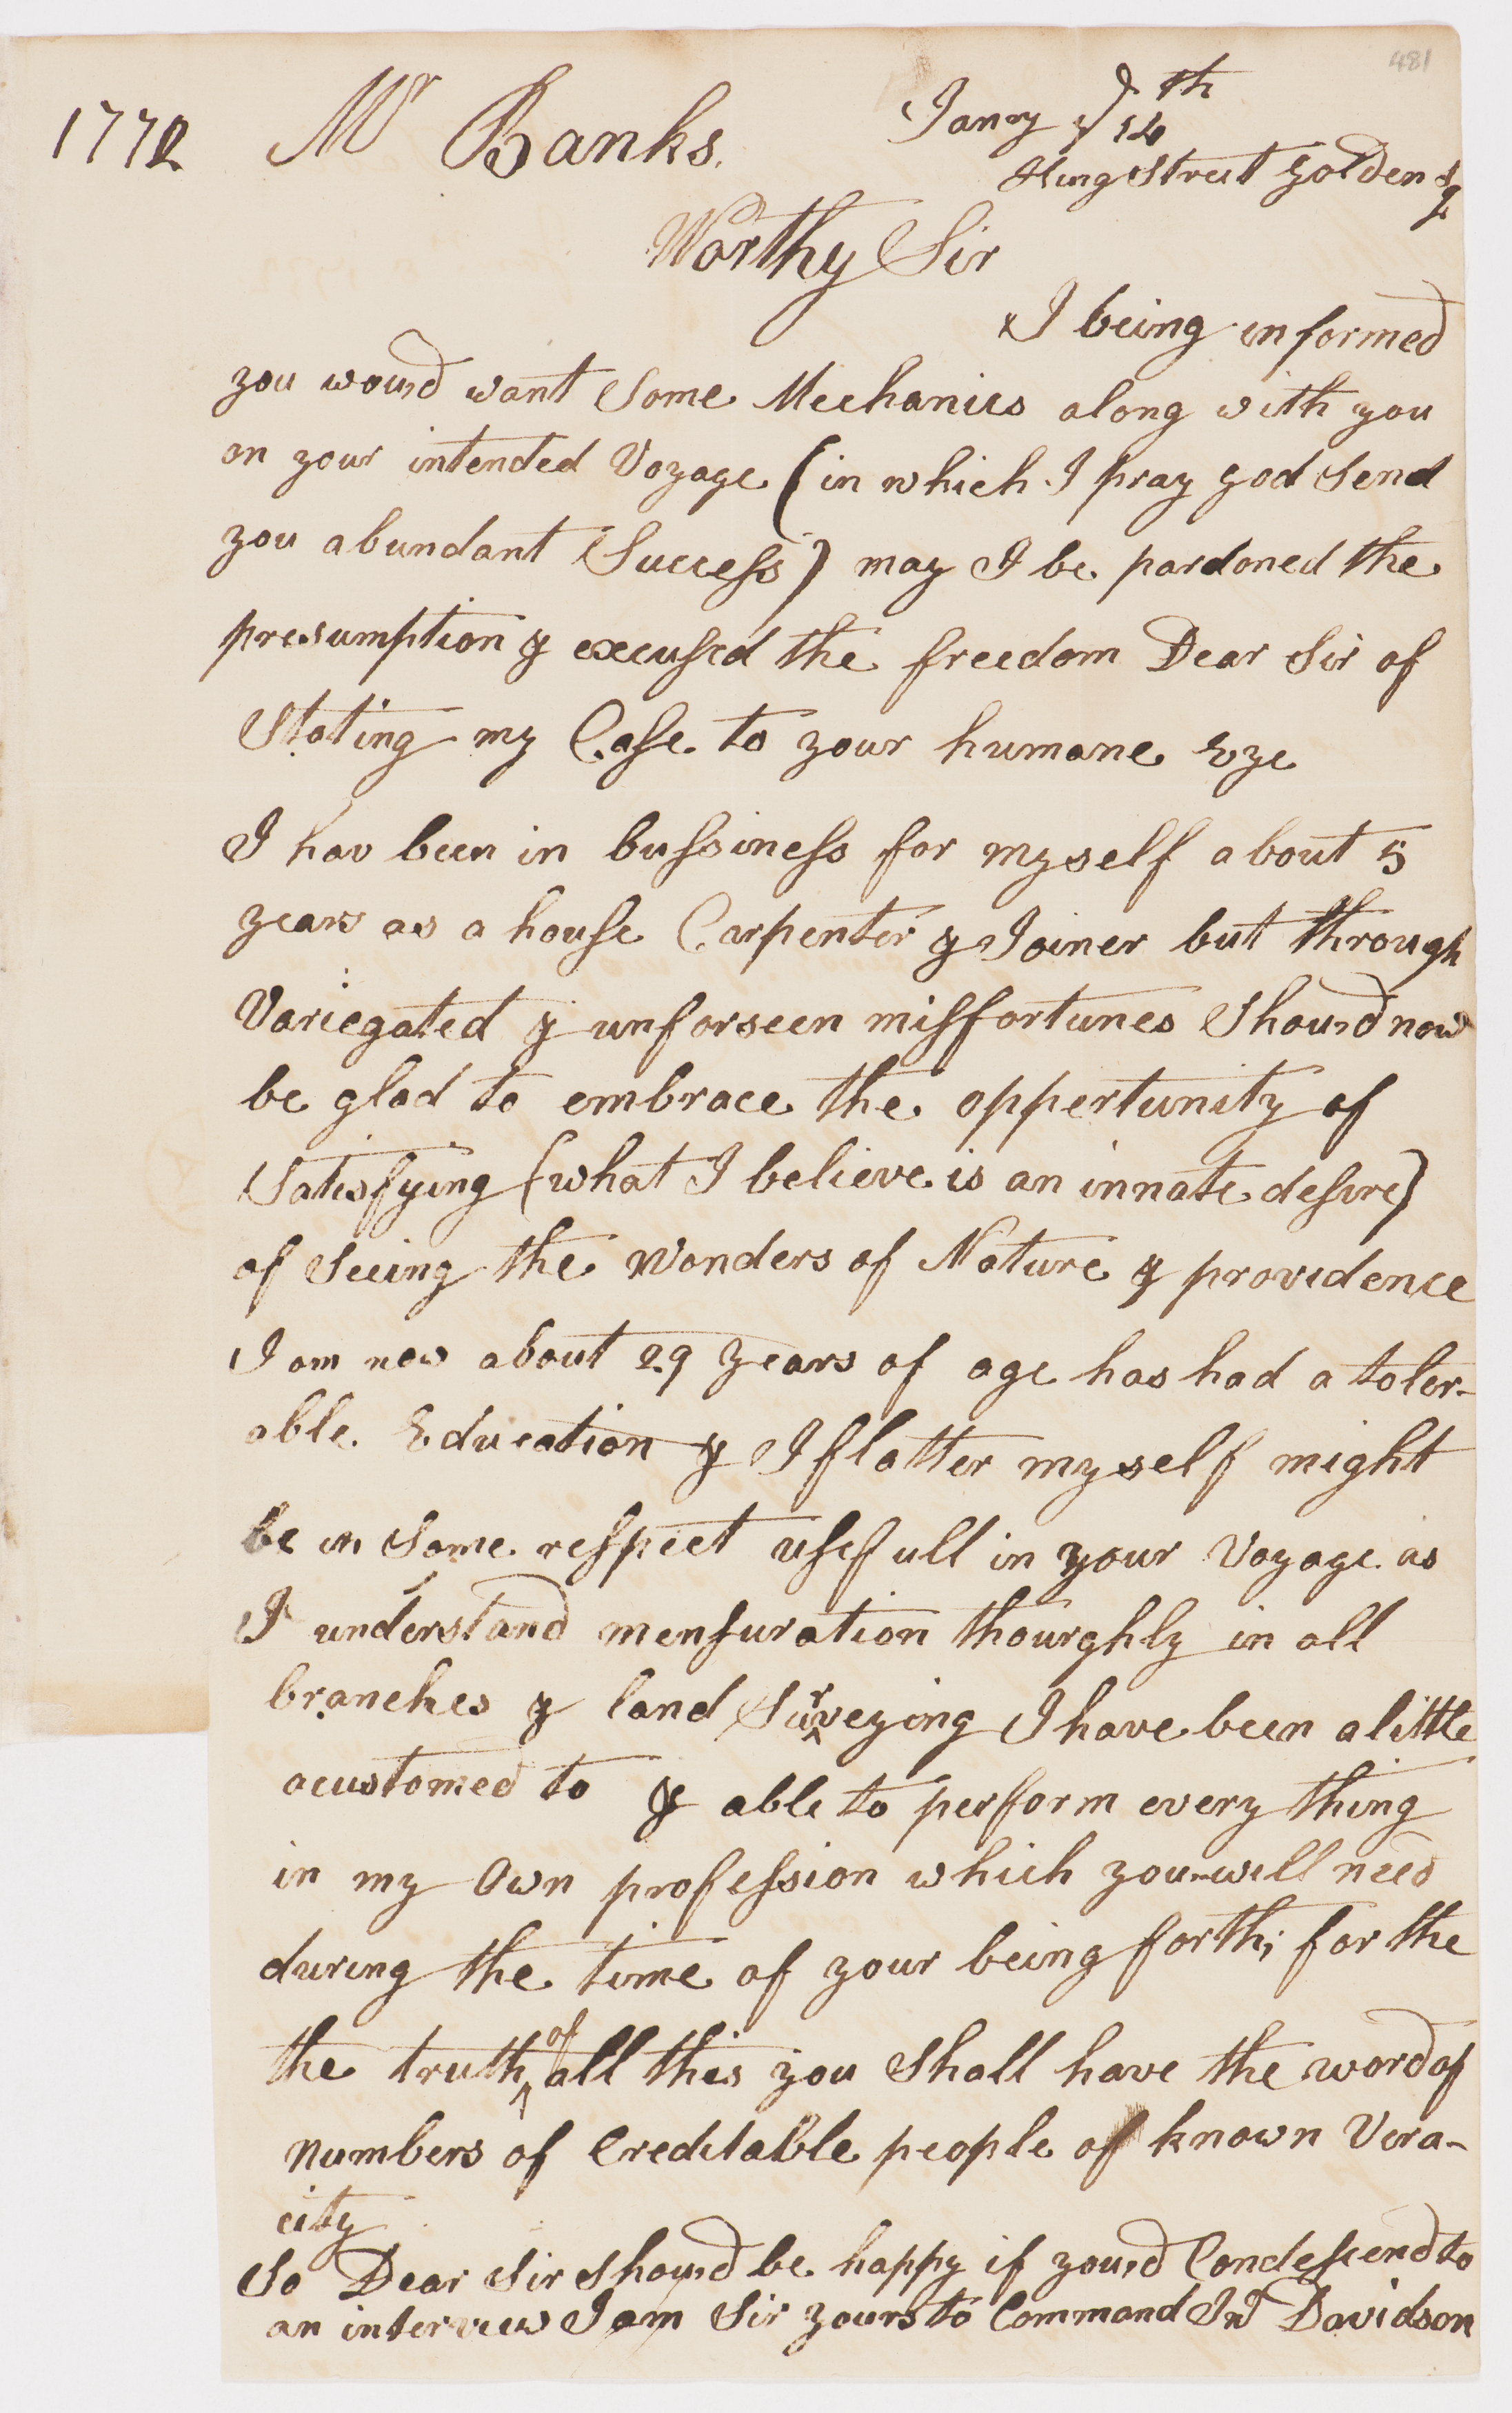 481
1772 Mr Banks. Janry ye 14th
King Street Golden Sq
Worthy Sir
I being informed
you wou'd want Some Mechanics along with you
on your intended Voyage (in which I pray god Send
you abundant Success) may I be pardoned the
presumption & excused the freedom Dear Sir of
Stating my Case to your humane Eye
I hav been in bussiness for myself about 5
years as a house Carpenter & Joiner but through
Variegated & unforseen missfortunes Shou'd now
be glad to embrace the oppertunity of
Satisfying (what I believe is an innate desire)
of Seeing the Wonders of Nature & providence
I am now about 29 Years of age has had a toler-
able Education & I flatter myself might
be in Some respect usefull in your Voyage as
I understand mensuration thourghly in all
branches & land Surveying I have been a little
acustomed to & able to perform every thing
in my Own profession which you will need
during the time of your being forth; for the
the truth of all this you Shall have the word of
Numbers of Creditable people of known Vera-
city
So Dear Sir Shou'd be happy if you'd Condescend to
an interview I am Sir yours to Command Jn⁰ Davidson